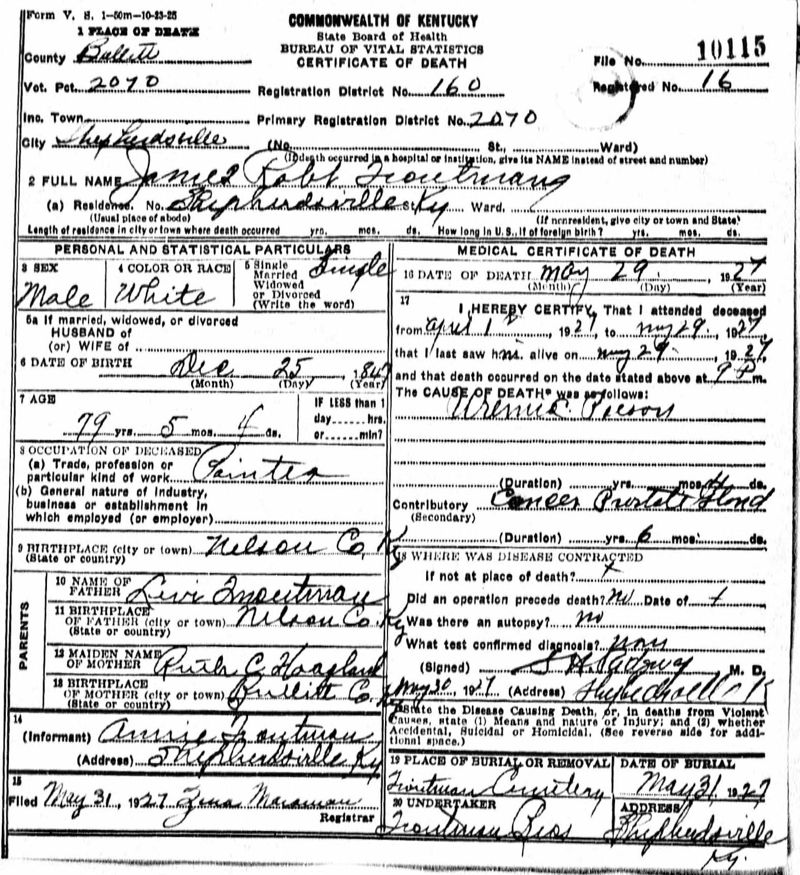 Form V. S. 1-50m-10-23-25
1 PLACE OF DEATH
COMMONWEALTH OF KENTUCKY
State Board of Health
BUREAU OF VITAL STATISTICS
CERTIFICATE OF DEATH
County Bullitt
File No. 10115
Vot. Pct. 2070
Registration District No. 160
Registered No. 16
Inc. Town
Primary Registration District No. 2070
City Shepherdsville
(No. St., Ward)
(If death occurred in a hospital or institution, give its NAME instead of street and number)
2 FULL NAME James Robt Troutman
(a) Residence. No. Shepherdsville St. Ky Ward.
(Usual place of abode) (If nonresident, give city or town and State)
Length of residence in city or town where death occurred yrs. mos. ds. How long in U. S., if of foreign birth? yrs. mos. ds.
PERSONAL AND STATISTICAL PARTICULARS
3 SEX Male
4 COLOR OR RACE White
5 Single Married Widowed or Divorced (Write the word) Single
5a If married, widowed, or divorced
HUSBAND of
(or) WIFE of
6 DATE OF BIRTH Dec 25, 1847
(Month) (Day) (Year)
7 AGE
79 yrs. 5 mos. 4 ds.
IF LESS than 1
day hrs.
or min?
8 OCCUPATION OF DECEASED
(a) Trade, profession or
particular kind of work Painter
(b) General nature of industry,
business or establishment in
which employed (or employer)
9 BIRTHPLACE (city or town) Nelson Co, Ky
(State or country)
PARENTS
10 NAME OF
FATHER Levi Troutman
11 BIRTHPLACE
OF FATHER (city or town) Nelson Co. Ky
(State or country)
12 MAIDEN NAME
OF MOTHER Ruth C Hoagland
13 BIRTHPLACE
OF MOTHER (city or town) Bullitt Co.
(State or country)
14
(Informant) Annie Troutman
(Address) Shepherdsville Ky
15
Filed May 31, 1927 Zena
Registrar
MEDICAL CERTIFICATE OF DEATH
16 DATE OF DEATH May 29, 1927
(Month) (Day) (Year)
17
I HEREBY CERTIFY, That I attended deceased
from April 1, 1927 to may 29. 1927
that I last saw him alive on may 29. 1927,
and that death occurred on the date stated above at 9 P m.
The CAUSE OF DEATH* was as follows:
Uremic Poison
(Duration) yrs. mos. 4 ds.
Contributory Cancer Prostate Gland
(Secondary)
(Duration) yrs. 6 mos. ds.
18 WHERE WAS DISEASE CONTRACTED
If not at place of death?
Did an operation precede death? no Date of
Was there an autopsy? no
What test confirmed diagnosis?
(Signed) S H Ridgway M. D.
May 30, 1927 (Address)
*State the Disease Causing Death, or, in deaths from Violent
Causes, state (1) Means and nature of Injury; and (2) whether
Accidental, Suicidal or Homicidal. (See reverse side for addi-
tional space.)
19 PLACE OF BURIAL OR REMOVAL
Troutman Cemetery
DATE OF BURIAL
May 31 1927
20 UNDERTAKER
Troutman Bros
ADDRESS
Shepherdsville
Ky.